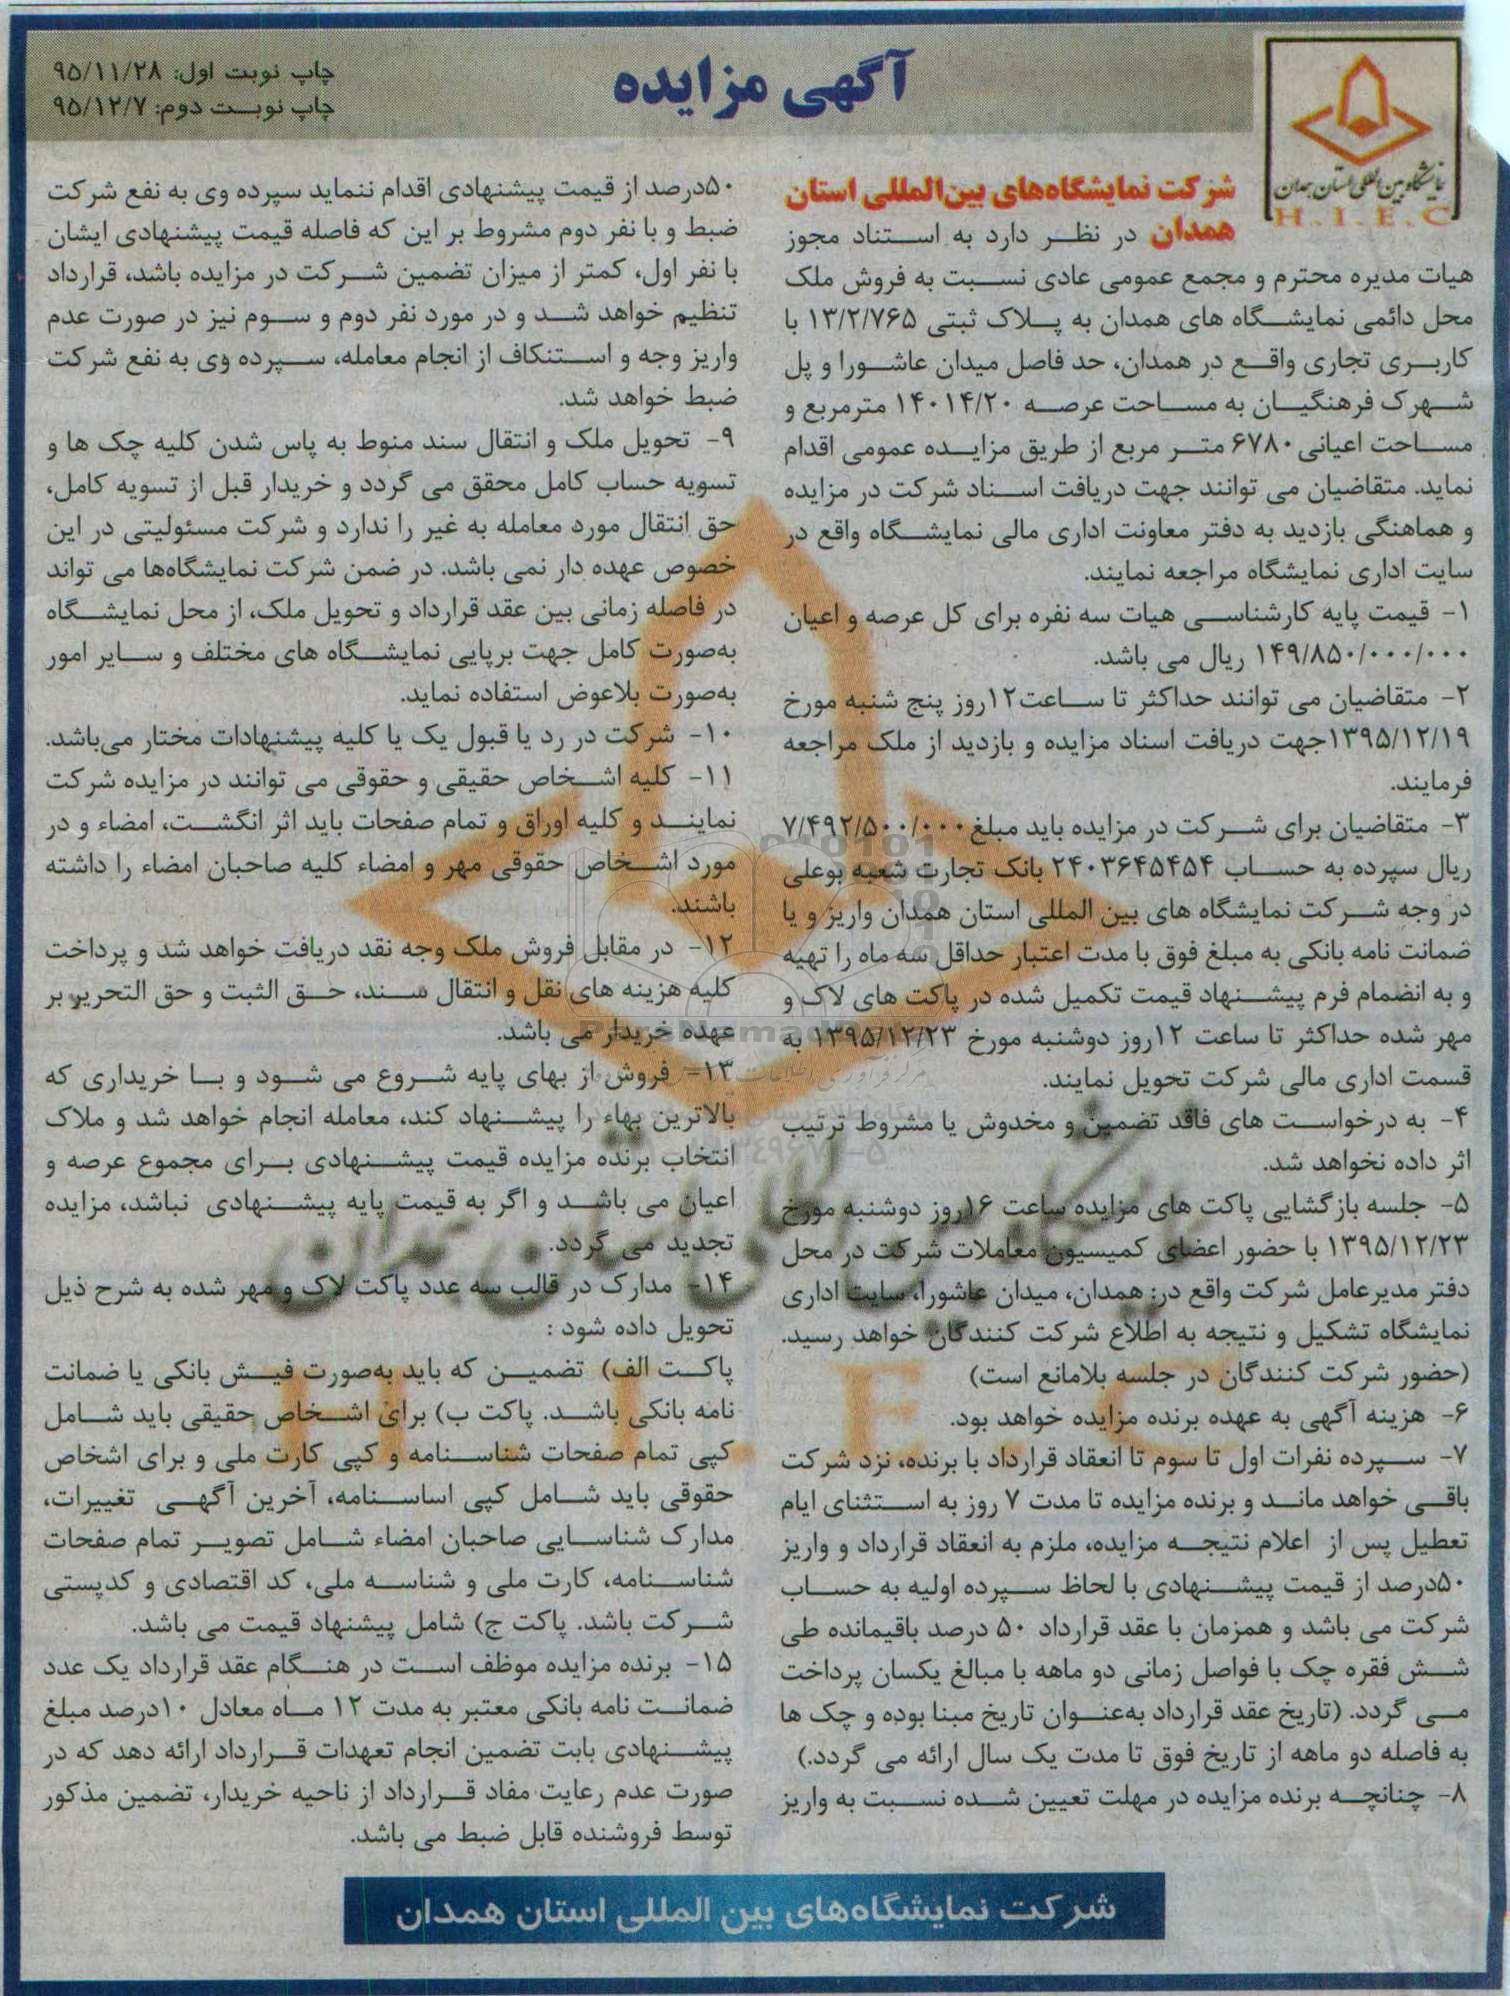 آگهی مزایده
چاپ نوبت اول: ۹۵/۱۱/۲۸
چاپ نوبت دوم: ۹۵/۱۲/۷
نمایشگاه بین المللی استان همدان
H.I.E.C
شرکت نمایشگاه‌های بین‌المللی استان
همدان در نظر دارد به استناد مجوز
هیات مدیره محترم و مجمع عمومی عادی نسبت به فروش ملک
محل دائمی نمایشگاه های همدان به پلاک ثبتی ۱۳/۲/۷۶۵ با
کاربری تجاری واقع در همدان، حد فاصل میدان عاشورا و پل
شهرک فرهنگیان به مساحت عرصه ۱۴۰۱۴/۲۰ مترمربع و
مساحت اعیانی ۶۷۸۰ متر مربع از طریق مزایده عمومی اقدام
نماید. متقاضیان می توانند جهت دریافت اسناد شرکت در مزایده
و هماهنگی بازدید به دفتر معاونت اداری مالی نمایشگاه واقع در
سایت اداری نمایشگاه مراجعه نمایند.
۱- قیمت پایه کارشناسی هیات سه نفره برای کل عرصه و اعیان
۱۴۹/۸۵۰/۰۰۰/۰۰۰ ریال می باشد.
۲- متقاضیان می توانند حداکثر تا ساعت۱۲روز پنج شنبه مورخ
۱۳۹۵/۱۲/۱۹جهت دریافت اسناد مزایده و بازدید از ملک مراجعه
فرمایند.
۳- متقاضیان برای شرکت در مزایده باید مبلغ ۷/۴۹۲/۵۰۰/۰۰۰
ریال سپرده به حساب ۲۴۰۳۶۴۵۴۵۴ بانک تجارت شعبه بوعلی
در وجه شرکت نمایشگاه های بین المللی استان همدان واریز و یا
ضمانت نامه بانکی به مبلغ فوق با مدت اعتبار حداقل سه ماه را تهیه
و به انضمام فرم پیشنهاد قیمت تکمیل شده در پاکت های لاک و
مهر شده حداکثر تا ساعت ۱۲روز دوشنبه مورخ ۱۳۹۵/۱۲/۲۳ به
قسمت اداری مالی شرکت تحویل نمایند.
۴- به درخواست های فاقد تضمین و مخدوش یا مشروط ترتیب
اثر داده نخواهد شد.
۵- جلسه بازگشایی پاکت های مزایده ساعت ۱۶روز دوشنبه مورخ
۱۳۹۵/۱۲/۲۳ با حضور اعضای کمیسیون معاملات شرکت در محل
دفتر مدیرعامل شرکت واقع در: همدان، میدان عاشورا، سایت اداری
نمایشگاه تشکیل و نتیجه به اطلاع شرکت کنندگان خواهد رسید.
(حضور شرکت کنندگان در جلسه بلامانع است)
۶- هزینه آگهی به عهده برنده مزایده خواهد بود.
۷- سپرده نفرات اول تا سوم تا انعقاد قرارداد با برنده، نزد شرکت
باقی خواهد ماند و برنده مزایده تا مدت ۷ روز به استثنای ایام
تعطیل پس از اعلام نتیجه مزایده، ملزم به انعقاد قرارداد و واریز
۵۰درصد از قیمت پیشنهادی با لحاظ سپرده اولیه به حساب
شرکت می باشد و همزمان با عقد قرارداد ۵۰ درصد باقیمانده طی
شش فقره چک با فواصل زمانی دو ماهه با مبالغ یکسان پرداخت
می گردد. (تاریخ عقد قرارداد به‌عنوان تاریخ مبنا بوده و چک ها
به فاصله دو ماهه از تاریخ فوق تا مدت یک سال ارائه می گردد.)
۸- چنانچه برنده مزایده در مهلت تعیین شده نسبت به واریز
۵۰درصد از قیمت پیشنهادی اقدام ننماید سپرده وی به نفع شرکت
ضبط و با نفر دوم مشروط بر این که فاصله قیمت پیشنهادی ایشان
با نفر اول، کمتر از میزان تضمین شرکت در مزایده باشد، قرارداد
تنظیم خواهد شد و در مورد نفر دوم و سوم نیز در صورت عدم
واریز وجه و استنکاف از انجام معامله، سپرده وی به نفع شرکت
ضبط خواهد شد.
۹- تحویل ملک و انتقال سند منوط به پاس شدن کلیه چک ها و
تسویه حساب کامل محقق می گردد و خریدار قبل از تسویه کامل،
حق انتقال مورد معامله به غیر را ندارد و شرکت مسئولیتی در این
خصوص عهده دار نمی باشد. در ضمن شرکت نمایشگاه‌ها می تواند
در فاصله زمانی بین عقد قرارداد و تحویل ملک، از محل نمایشگاه
به‌صورت کامل جهت برپایی نمایشگاه های مختلف و سایر امور
به‌صورت بلاعوض استفاده نماید.
۱۰- شرکت در رد یا قبول یک یا کلیه پیشنهادات مختار می‌باشد.
۱۱- کلیه اشخاص حقیقی و حقوقی می توانند در مزایده شرکت
نمایند و کلیه اوراق و تمام صفحات باید اثر انگشت، امضاء و در
مورد اشخاص حقوقی مهر و امضاء کلیه صاحبان امضاء را داشته
باشند.
۱۲- در مقابل فروش ملک وجه نقد دریافت خواهد شد و پرداخت
کلیه هزینه های نقل و انتقال سند، حق الثبت و حق التحریر بر
عهده خریدار می باشد.
۱۳- فروش از بهای پایه شروع می شود و با خریداری که
بالاترین بهاء را پیشنهاد کند، معامله انجام خواهد شد و ملاک
انتخاب برنده مزایده قیمت پیشنهادی برای مجموع عرصه و
اعیان می باشد و اگر به قیمت پایه پیشنهادی نباشد، مزایده
تجدید می گردد.
۱۴- مدارک در قالب سه عدد پاکت لاک و مهر شده به شرح ذیل
تحویل داده شود :
پاکت الف) تضمین که باید به‌صورت فیش بانکی یا ضمانت
نامه بانکی باشد. پاکت ب) برای اشخاص حقیقی باید شامل
کپی تمام صفحات شناسنامه و کپی کارت ملی و برای اشخاص
حقوقی باید شامل کپی اساسنامه، آخرین آگهی تغییرات،
مدارک شناسایی صاحبان امضاء شامل تصویر تمام صفحات
شناسنامه، کارت ملی و شناسه ملی، کد اقتصادی و کدپستی
شرکت باشد. پاکت ج) شامل پیشنهاد قیمت می باشد.
۱۵- برنده مزایده موظف است در هنگام عقد قرارداد یک عدد
ضمانت نامه بانکی معتبر به مدت ۱۲ ماه معادل ۱۰درصد مبلغ
پیشنهادی بابت تضمین انجام تعهدات قرارداد ارائه دهد که در
صورت عدم رعایت مفاد قرارداد از ناحیه خریدار، تضمین مذکور
توسط فروشنده قابل ضبط می باشد.
شرکت نمایشگاه‌های بین المللی استان همدان